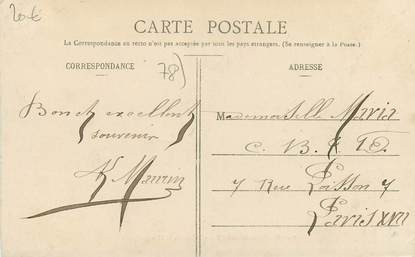 20€
CARTE POSTALE
La Correspondance au recto n'est pas acceptée par tous les pays étrangers. (Se renseigner à la Poste.)
CORRESPONDANCE
78)
ADRESSE
Bon et excellent
souvenir
Mademoiselle Maria
C. B.
7 Rue Poisson 7
Paris XVII